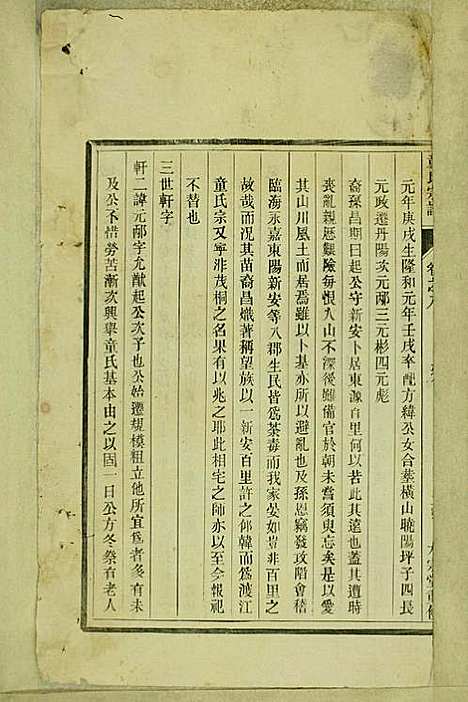 元年庚戌生隆和元年壬戌卒配方緯公女合塟橫山曉陽坪子四長
元政遷丹陽次元邴三元彬四元彪
裔孫昌期曰起公守新安卜居東源百里何以若此其遠也蓋其遭
喪亂親歷艱險每恨入山不深後雖備官於朝未嘗須臾忘矣是以愛
其山川風土而居焉雖以卜基亦所以避亂也及孫恩竊發攻陷會稽
臨海永嘉東陽新安等八郡生民皆爲荼毒而我家晏如豈非百里之
故哉而况其苗裔昌熾著稱望族以一新安百里許之邻韓而爲渡江
童氏宗又寧非茂桐之名果有以兆之耶此相宅之師亦以至今報祀
不替也
三世軒字
軒二諱元邴字尤猷起公次子也公始遷規模粗立他所宜爲者多有未
及公不惜勞苦漸次興舉童氏基本由之以固一日公方冬祭有老人